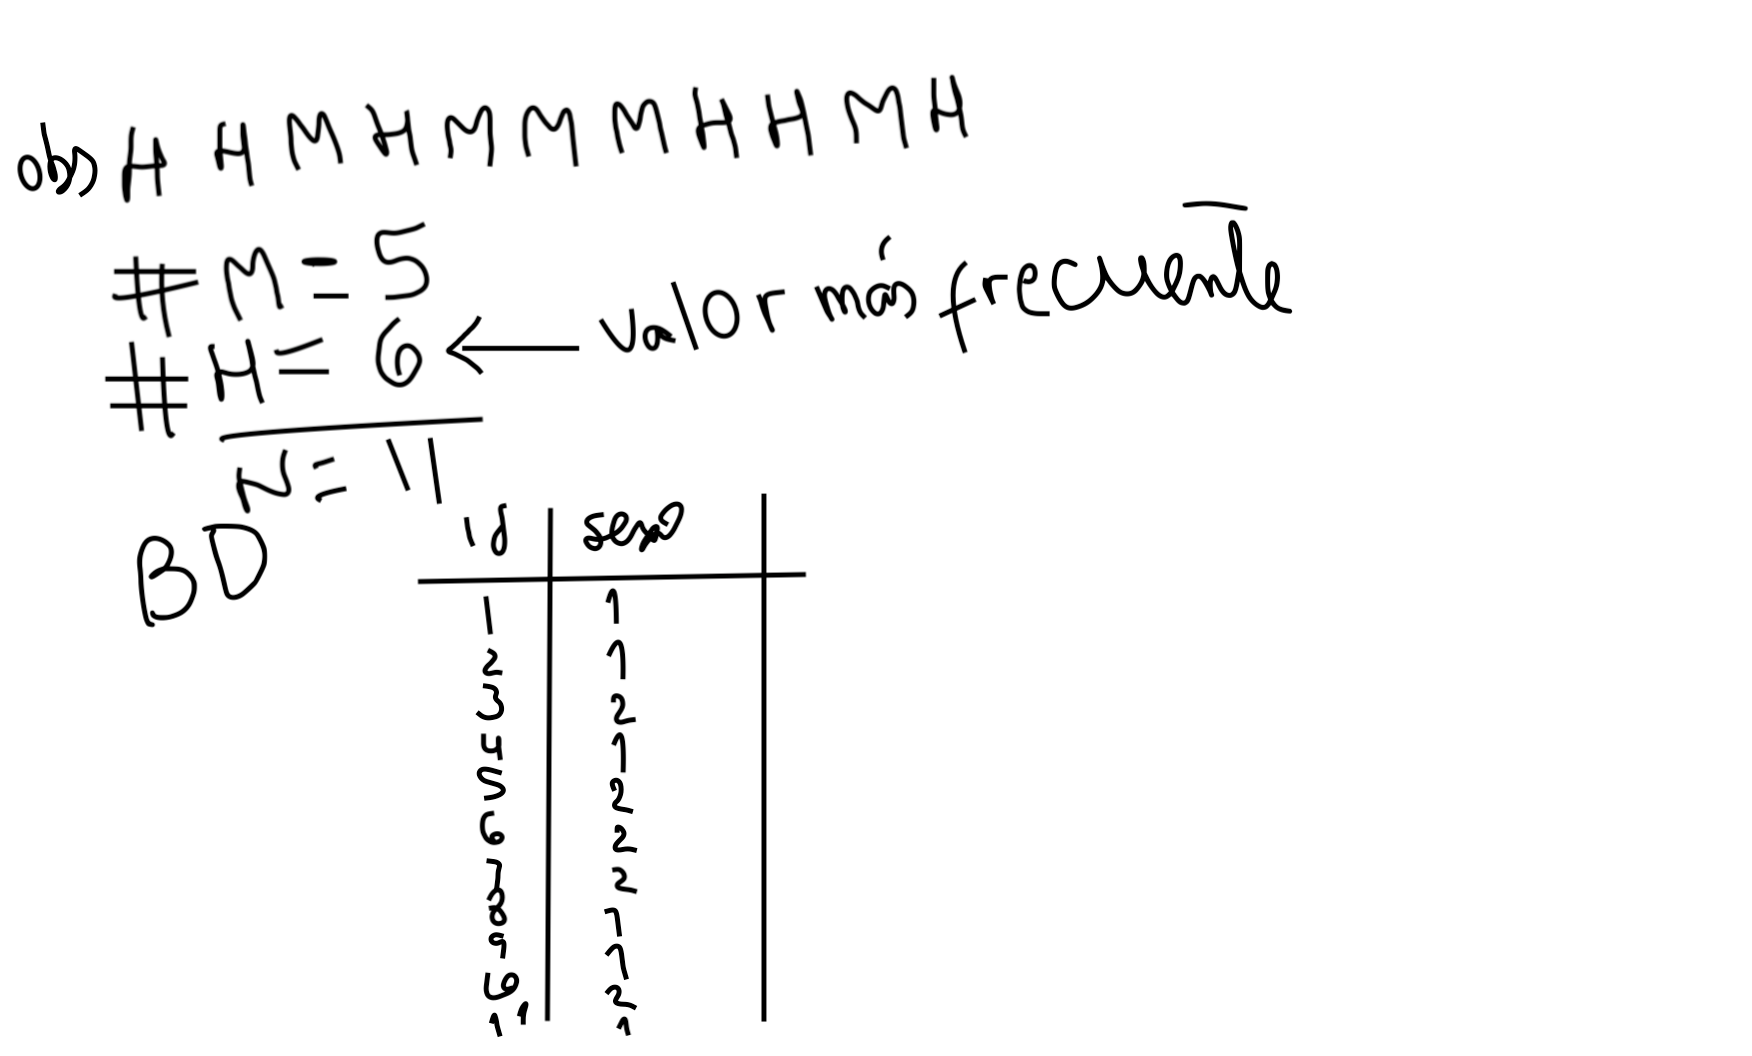 obs H H M H M M M H H M H
# M = 5
# H = 6 ← valor más frecuente
N = 11
BD
id sexo
1 1
2 1
3 2
4 1
5 2
6 2
7 2
8 1
9 1
10 2
11 1